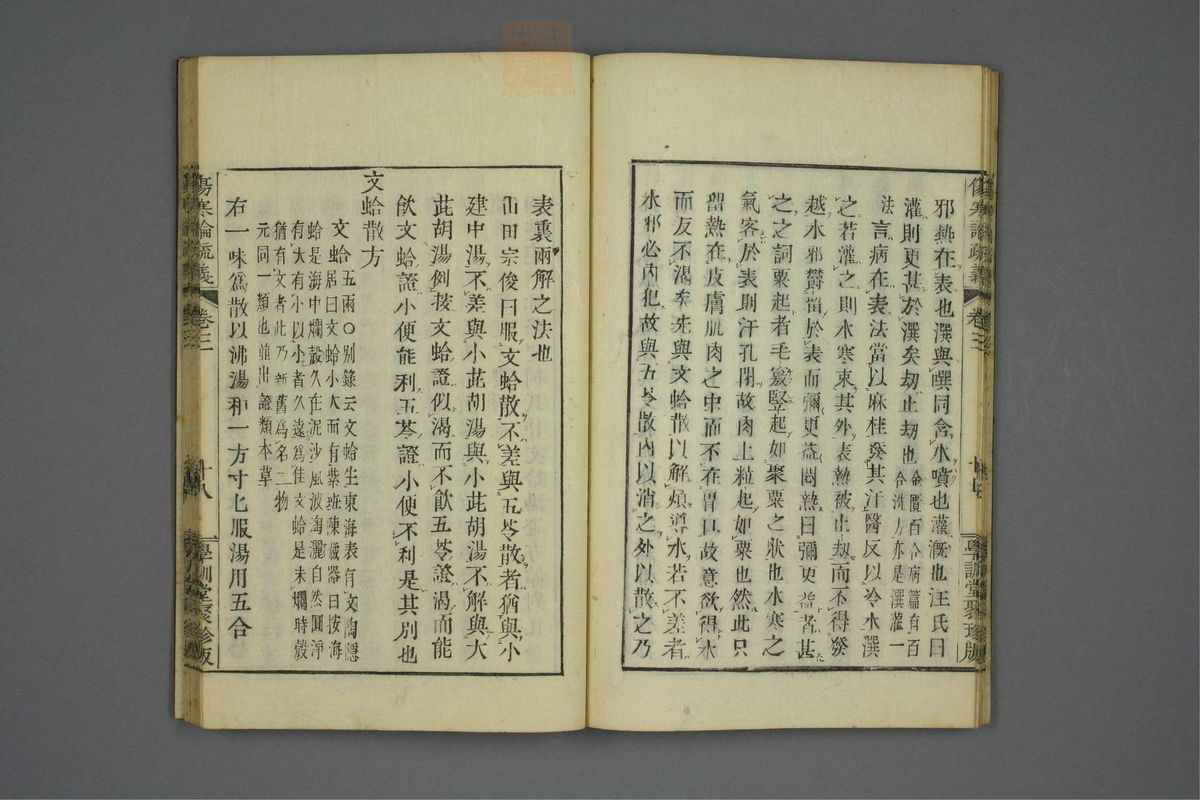 邪熱在表也潠與噀同含水噴也灌漑也汪氏曰
灌則更甚於潠矣劫止劫也金匱百合病篇有百
合洗方亦是潠灌一
法言病在表法當以麻桂發其汗醫反以冷水潠
之若灌之則水寒束其外表熱被止劫而不得發
越水邪鬱畱於表而彌更益悶熱曰彌更益者甚
之之詞粟起者毛竅竪起如聚粟之狀也水寒之
氣客於表則汗孔閉故肉上粒起如粟也然此只
畱熱在皮膚肌肉之中而不在胃口故意欲得水
而反不渴矣先與文蛤散以解煩導水若不差者
水邪必內犯故與五苓散內以消之外以散之乃
傷寒論疏義
卷三
十七
學訓堂聚珍版
表裏兩解之法也
山田宗俊曰服文蛤散不差與五苓散者猶與小
建中湯不差與小茈胡湯與小茈胡湯不解與大
茈胡湯例按文蛤證似渴而不飮五苓證渴而能
飮文蛤證小便能利五苓證小便不利是其別也
文蛤散方
文蛤五兩○别錄云文蛤生東海表有文陶隱
居曰文蛤小大而有紫斑陳藏器曰按海
蛤是海中爛殼久在泥沙風波淘灑自然圓淨
有大有小以小者久遠爲佳文蛤是未爛時殼
猶有文者此乃新舊爲名二物
元同一類也並出證類本草
右一味爲散以沸湯和一方寸匕服湯用五合
傷寒論疏義
卷三
十八
學訓堂聚珍版